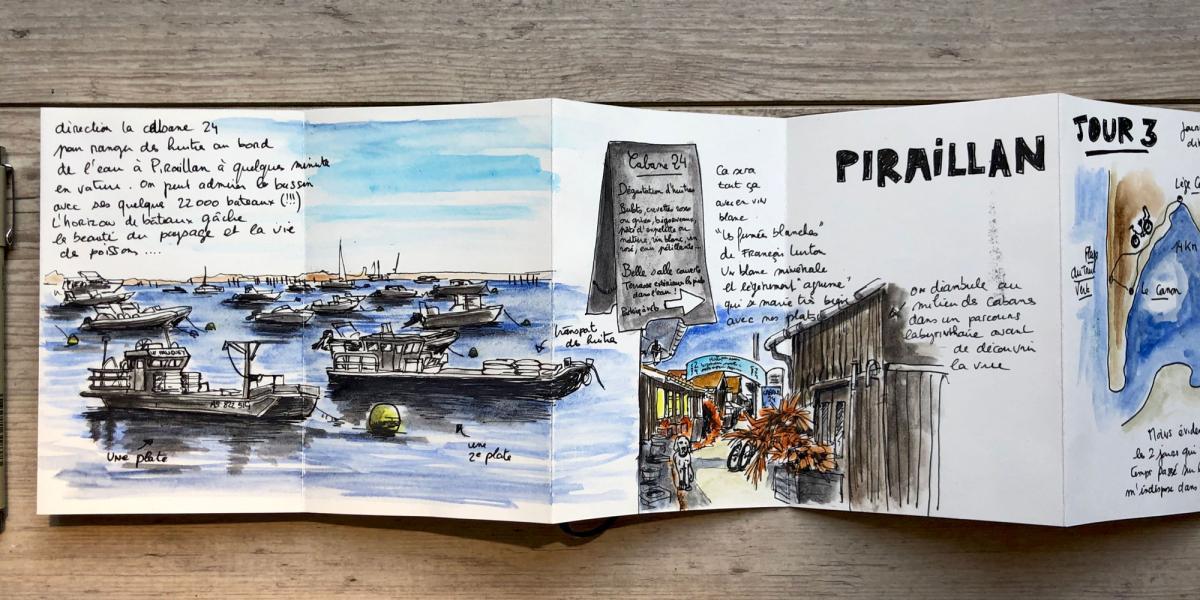 direction la cabane 24
pour manger des huitre au bord
de l'eau à Piraillan à quelques minute
en voture. On peut admirer le bassin
avec ses quelque 22 000 bateaux (!!!)
L'horizon de bateaux gâche
la beauté du paysage et la vie
de poisson ....
une plate
une
2e plate
transpot
des huitre
Cabane 24
Dégustation d'huîtres
Bulots, crevettes roses
ou grises, bigorneaux,
pâté d'espelette ou
nature, vin blanc, vin
rosé, eau pétillante...
Belle salle couverte
Terrasse extérieur les pieds
dans l'eau!
Parking à vélo
Ca sera
tout ça
avec en vin
blanc.
"Les fumées blanches"
de François Lurton
Un blanc minérale
et légèrement "agrume"
qui se marie très bien
avec nos plats
PIRAILLAN
on diambule au
milieu ds Cabans
dans un parcours
labyrinthaire avant
de découvrir
la vue
TOUR 3
Lège Ca
14 Km
Le Canon
Plage
du Truc
Vert
Mais éviden
les 2 jours qui
temps passé su
m'indispose dans